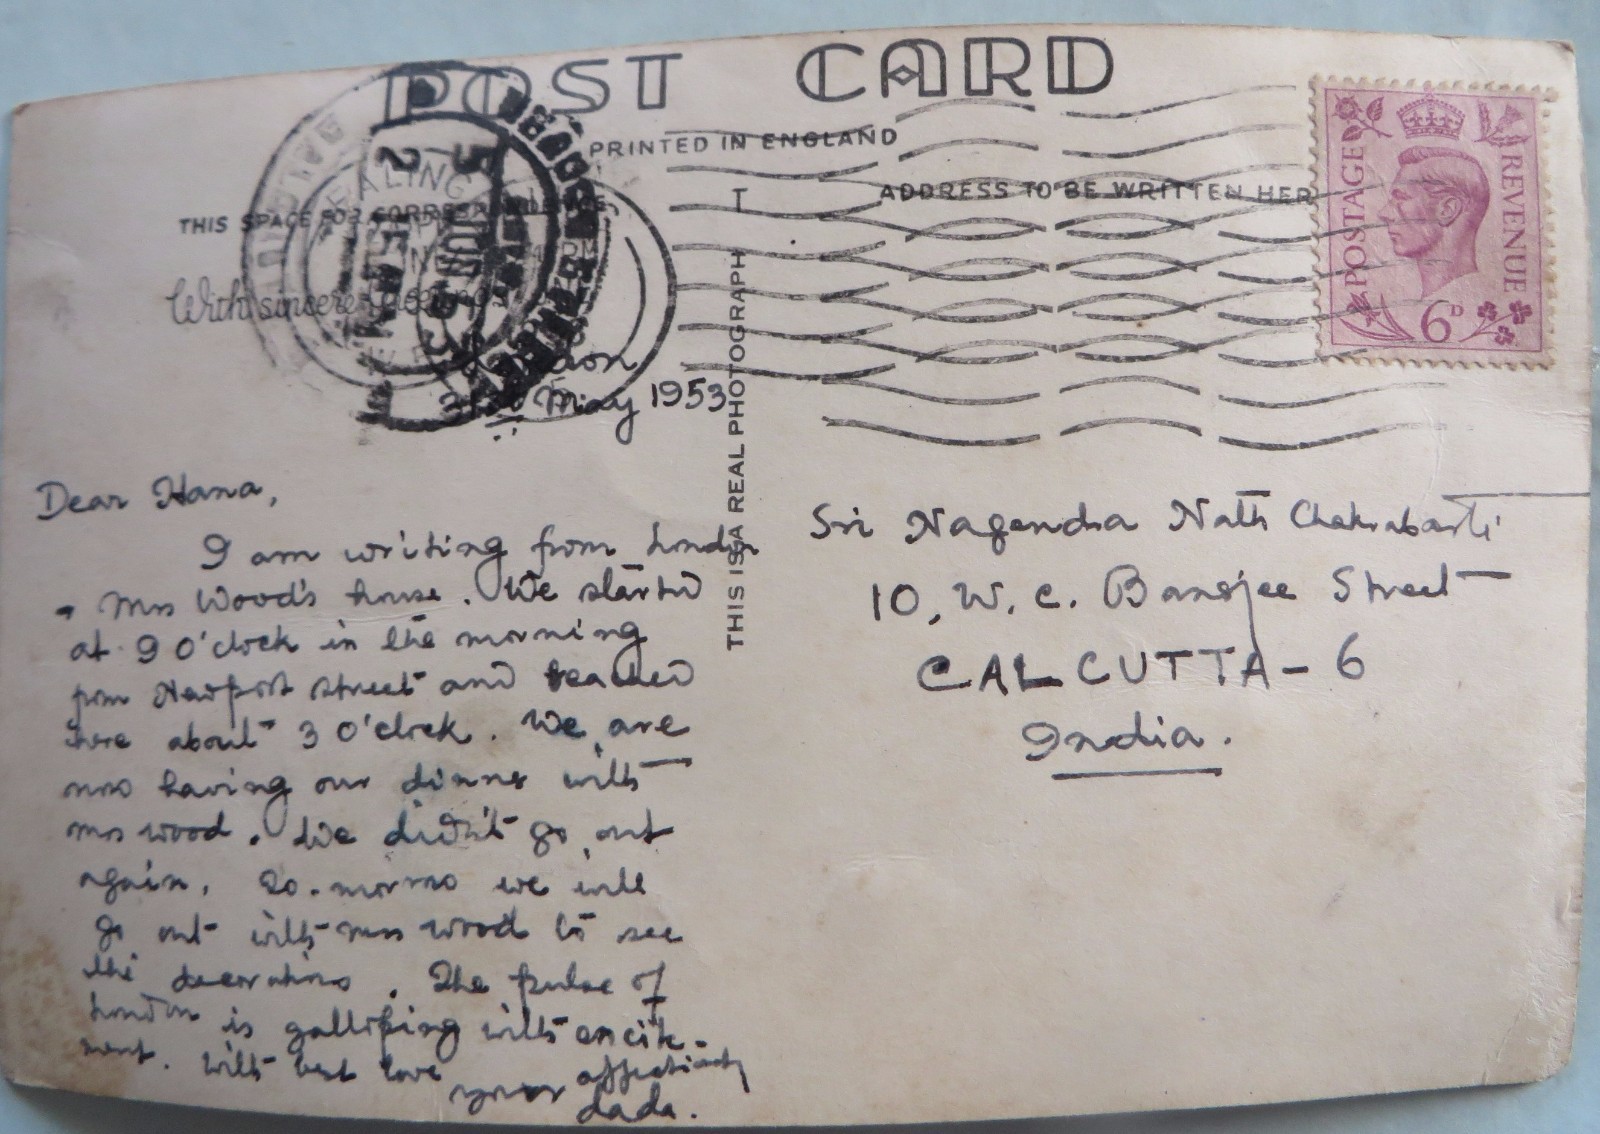 POST CARD
PRINTED IN ENGLAND
THIS SPACE FOR CORRESPONDENCE
ADDRESS TO BE WRITTEN HER
With sincere greetings
EALING
JUN
London
31st May 1953
THIS IS A REAL PHOTOGRAPH
POSTAGE
REVENUE
6D
Dear Hana,
I am writing from London
Mrs Wood's house. We started
at 9 O'clock in the morning
from Newport street and reached
here about 3 O'clock. We are
now having our dinner with
Mrs Wood. We didn't go out
again. To-morrow we will
go out with Mrs Wood to see
the decorations. The pulse of
London is galloping with excite-
ment. With best love
your affectionately
dada.
Sri Nagendra Nath Chakrabarti
10, W. C. Banerjee Street
CALCUTTA-6
India.